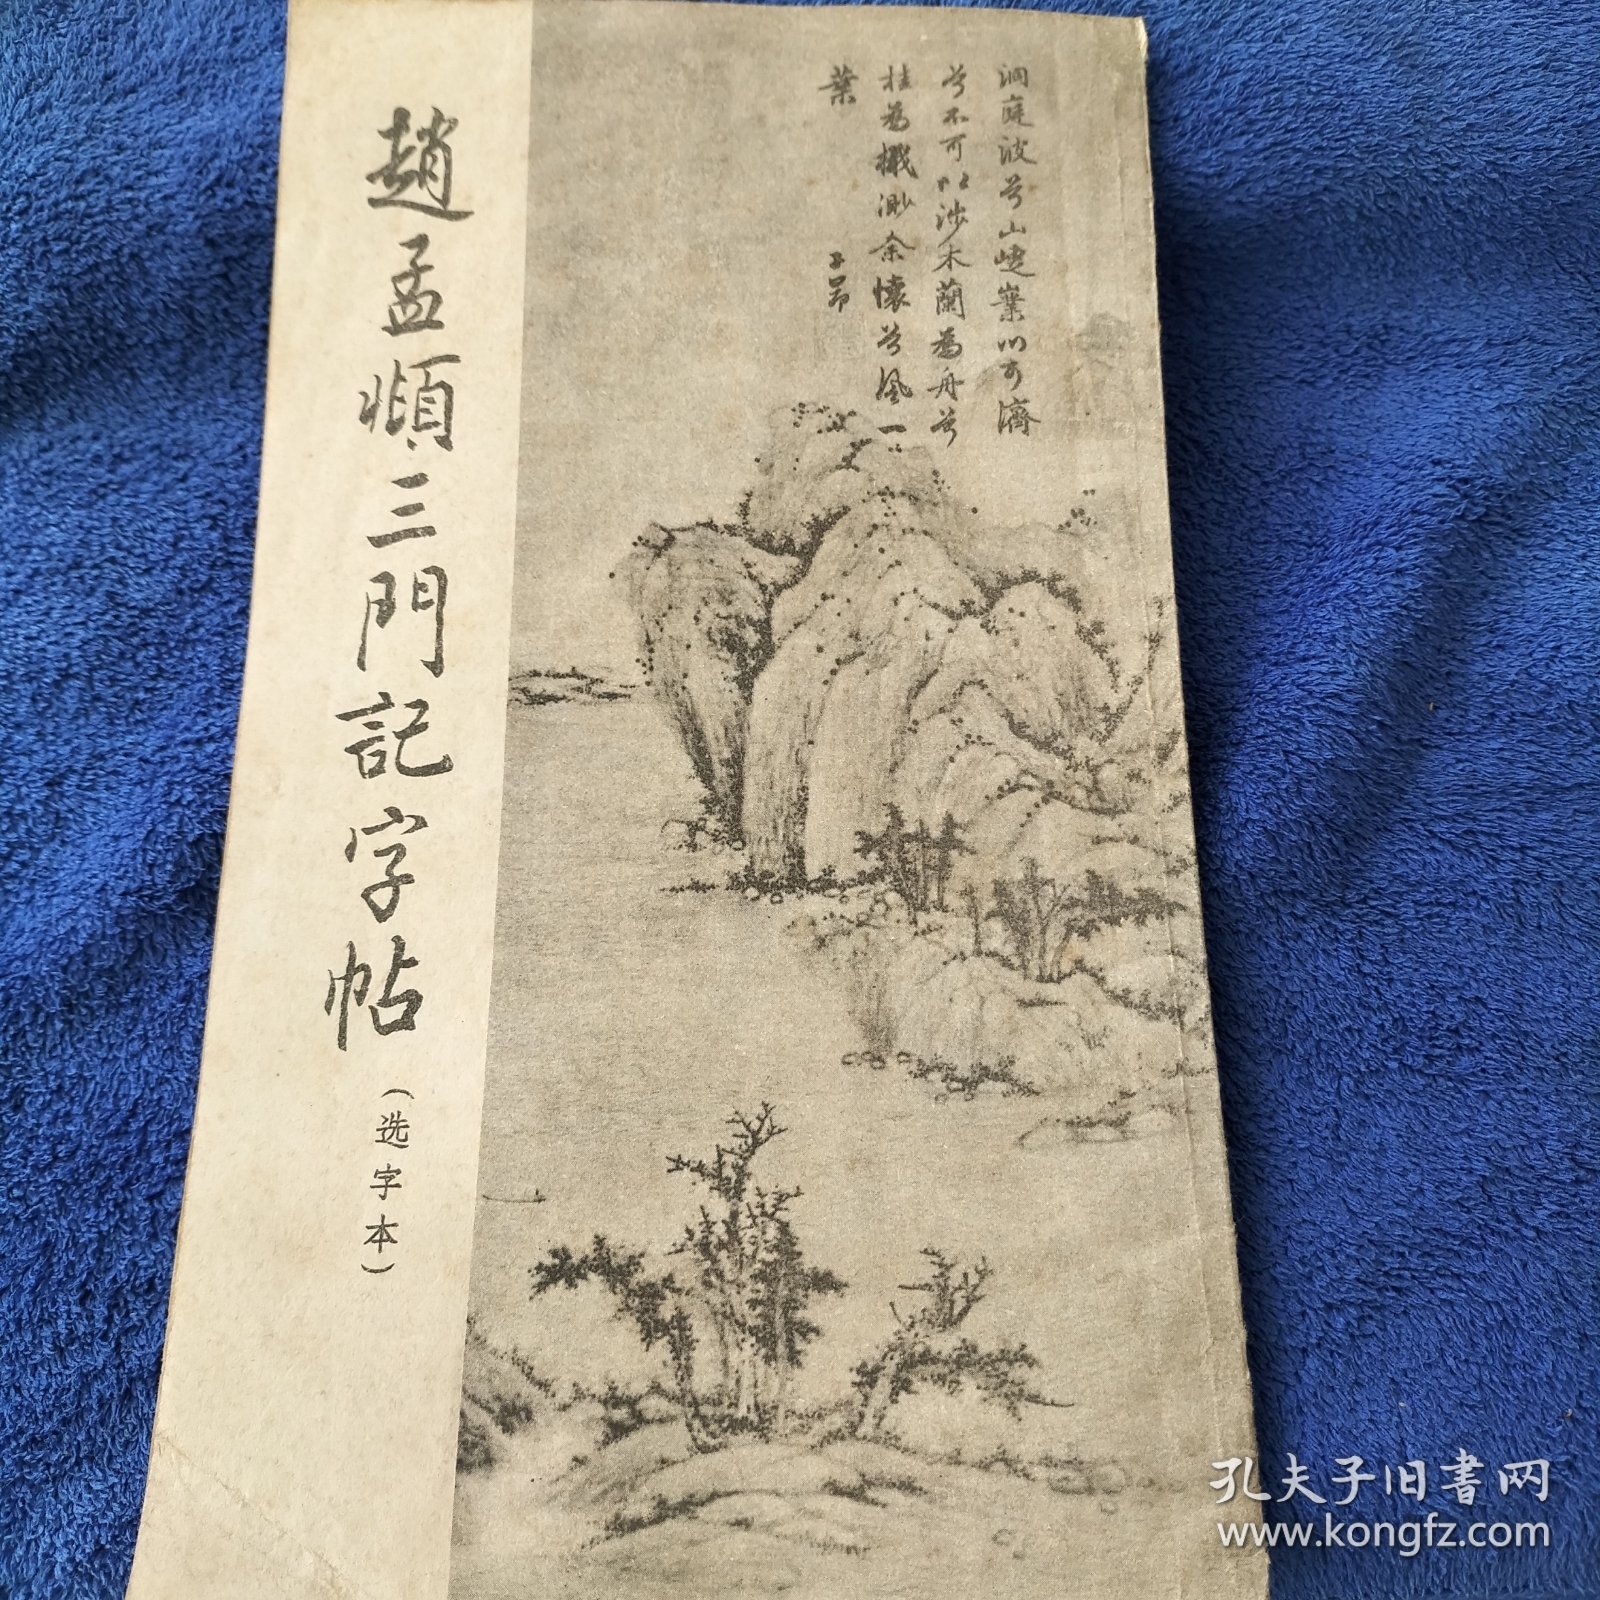 趙孟頫三門記字帖
（选字本）
洞庭波兮山崨嶪川可濟
兮不可以涉木蘭為舟兮
桂為檝渺余懷兮風一
葉
子昂
孔夫子旧書网
www.kongfz.com